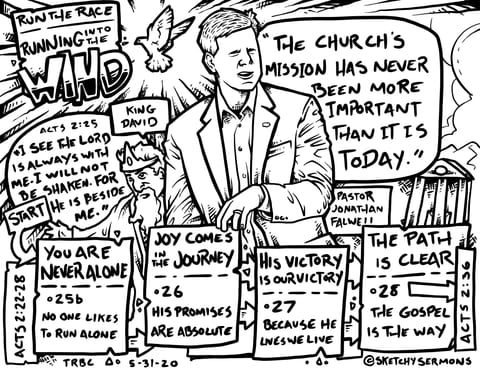 RUN THE RACE
RUNNING INTO THE
WIND
"THE CHURCH'S
MISSION HAS NEVER
BEEN MORE
IMPORTANT
THAN IT IS
TODAY."
KING
DAVID
ACTS 2:25
"I SEE THE LORD
IS ALWAYS WITH
ME. I WILL NOT
BE SHAKEN. FOR
HE IS BESIDE
ME."
START
PASTOR
JONATHAN
FALWELL
ACTS 2:22-28
YOU ARE
NEVER ALONE
•25b
NO ONE LIKES
TO RUN ALONE
JOY COMES
IN THE JOURNEY
•26
HIS PROMISES
ARE ABSOLUTE
HIS VICTORY
IS OUR VICTORY
•27
BECAUSE HE
LIVES WE LIVE
THE PATH
IS CLEAR
•28
THE GOSPEL
IS THE WAY
ACTS 2:36
TRBC 5-31-20
©SKETCHYSERMONS